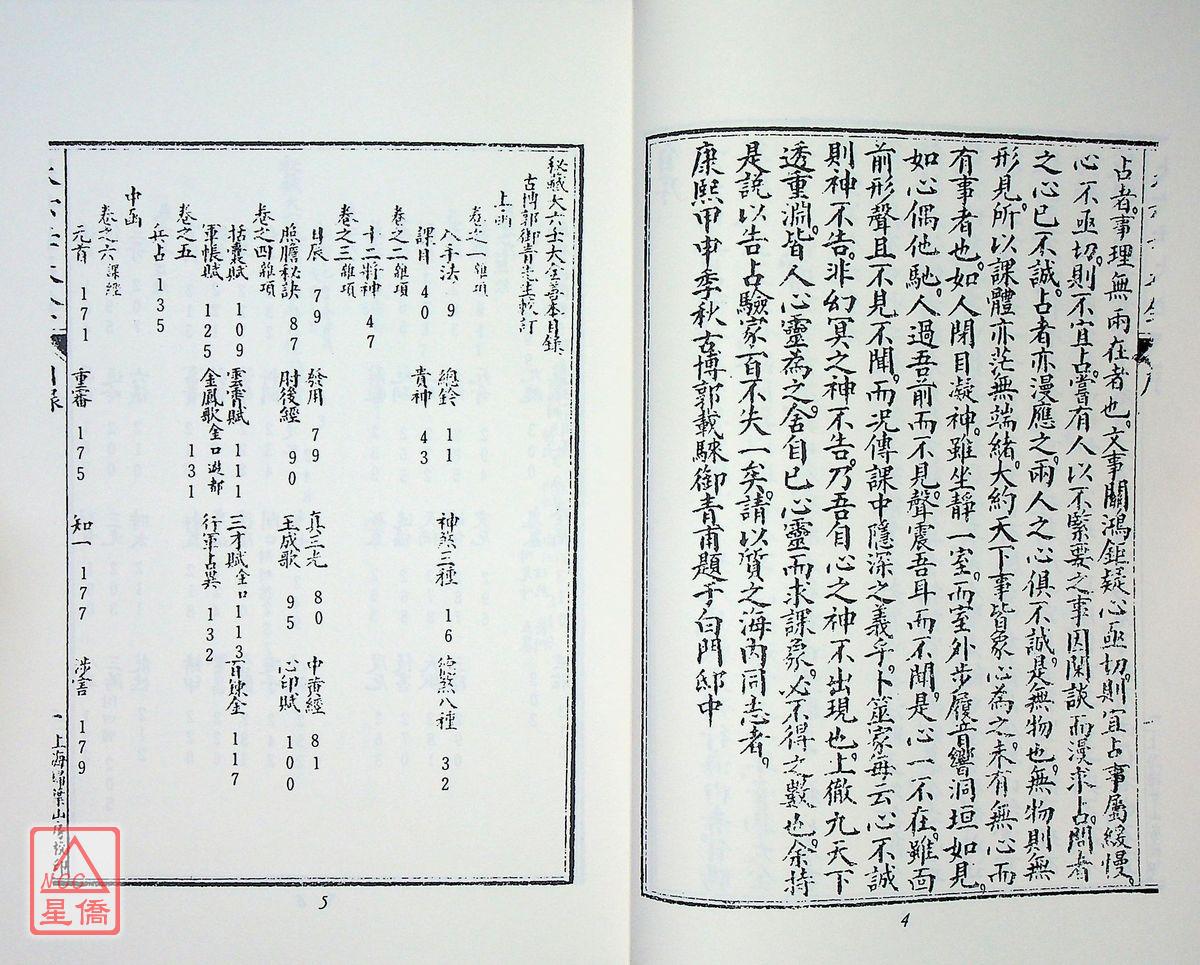 占者。事理無兩在者也。文事關鴻鉅。疑心亟切。則宜占。事屬緩慢。
心不亟切。則不宜占。嘗有人以不緊要之事。因閑談而漫求占。問者
之心已不誠。占者亦漫應之。兩人之心俱不誠。是無物也。無物則無
形見。所以課體亦茫無端緒。大約天下事皆象心為之。未有無心而
有事者也。如人閉目凝神。雖坐靜一室。而室外步履音響。洞垣如見。
如心偶他馳。人過吾前而不見。聲震吾耳而不聞。是心一不在。雖面
前形聲且不見不聞。而況傳課中隱深之義乎。卜筮家每云心不誠
則神不告。非幻冥之神不告。乃吾自心之神不出現也。上徹九天下
透重淵。皆人心靈為之舍。自己心靈而求課象。必不得之數也。余持
是說以告占驗家。百不失一矣。請以質之海內同志者。
康熙甲申季秋古博郭載騋御青甫題于白門邸中
4
秘藏大六壬大全善本目錄
古博郭御青先生較訂
上函
卷之一 雜項
入手法 9 總鈐 11 神煞三種 16 德煞八種 32
課目 40 貴神 43
卷之二 雜項
十二將神 47
卷之三 雜項
日辰 79 發用 79 真三光 80 中黃經 81
照膽秘訣 87 肘後經 90 玉成歌 95 心印賦 100
卷之四 雜項
括囊賦 109 雲霄賦 111 三才賦金口 113 百鍊金 117
軍帳賦 125 金鳳歌金口遊都 131 行軍占異 132
卷之五
兵占 135
中函
卷之六 課經
元首 171 重審 175 知一 177 涉害 179
目錄
一
上海掃葉山房校印
5
NCC
星僑